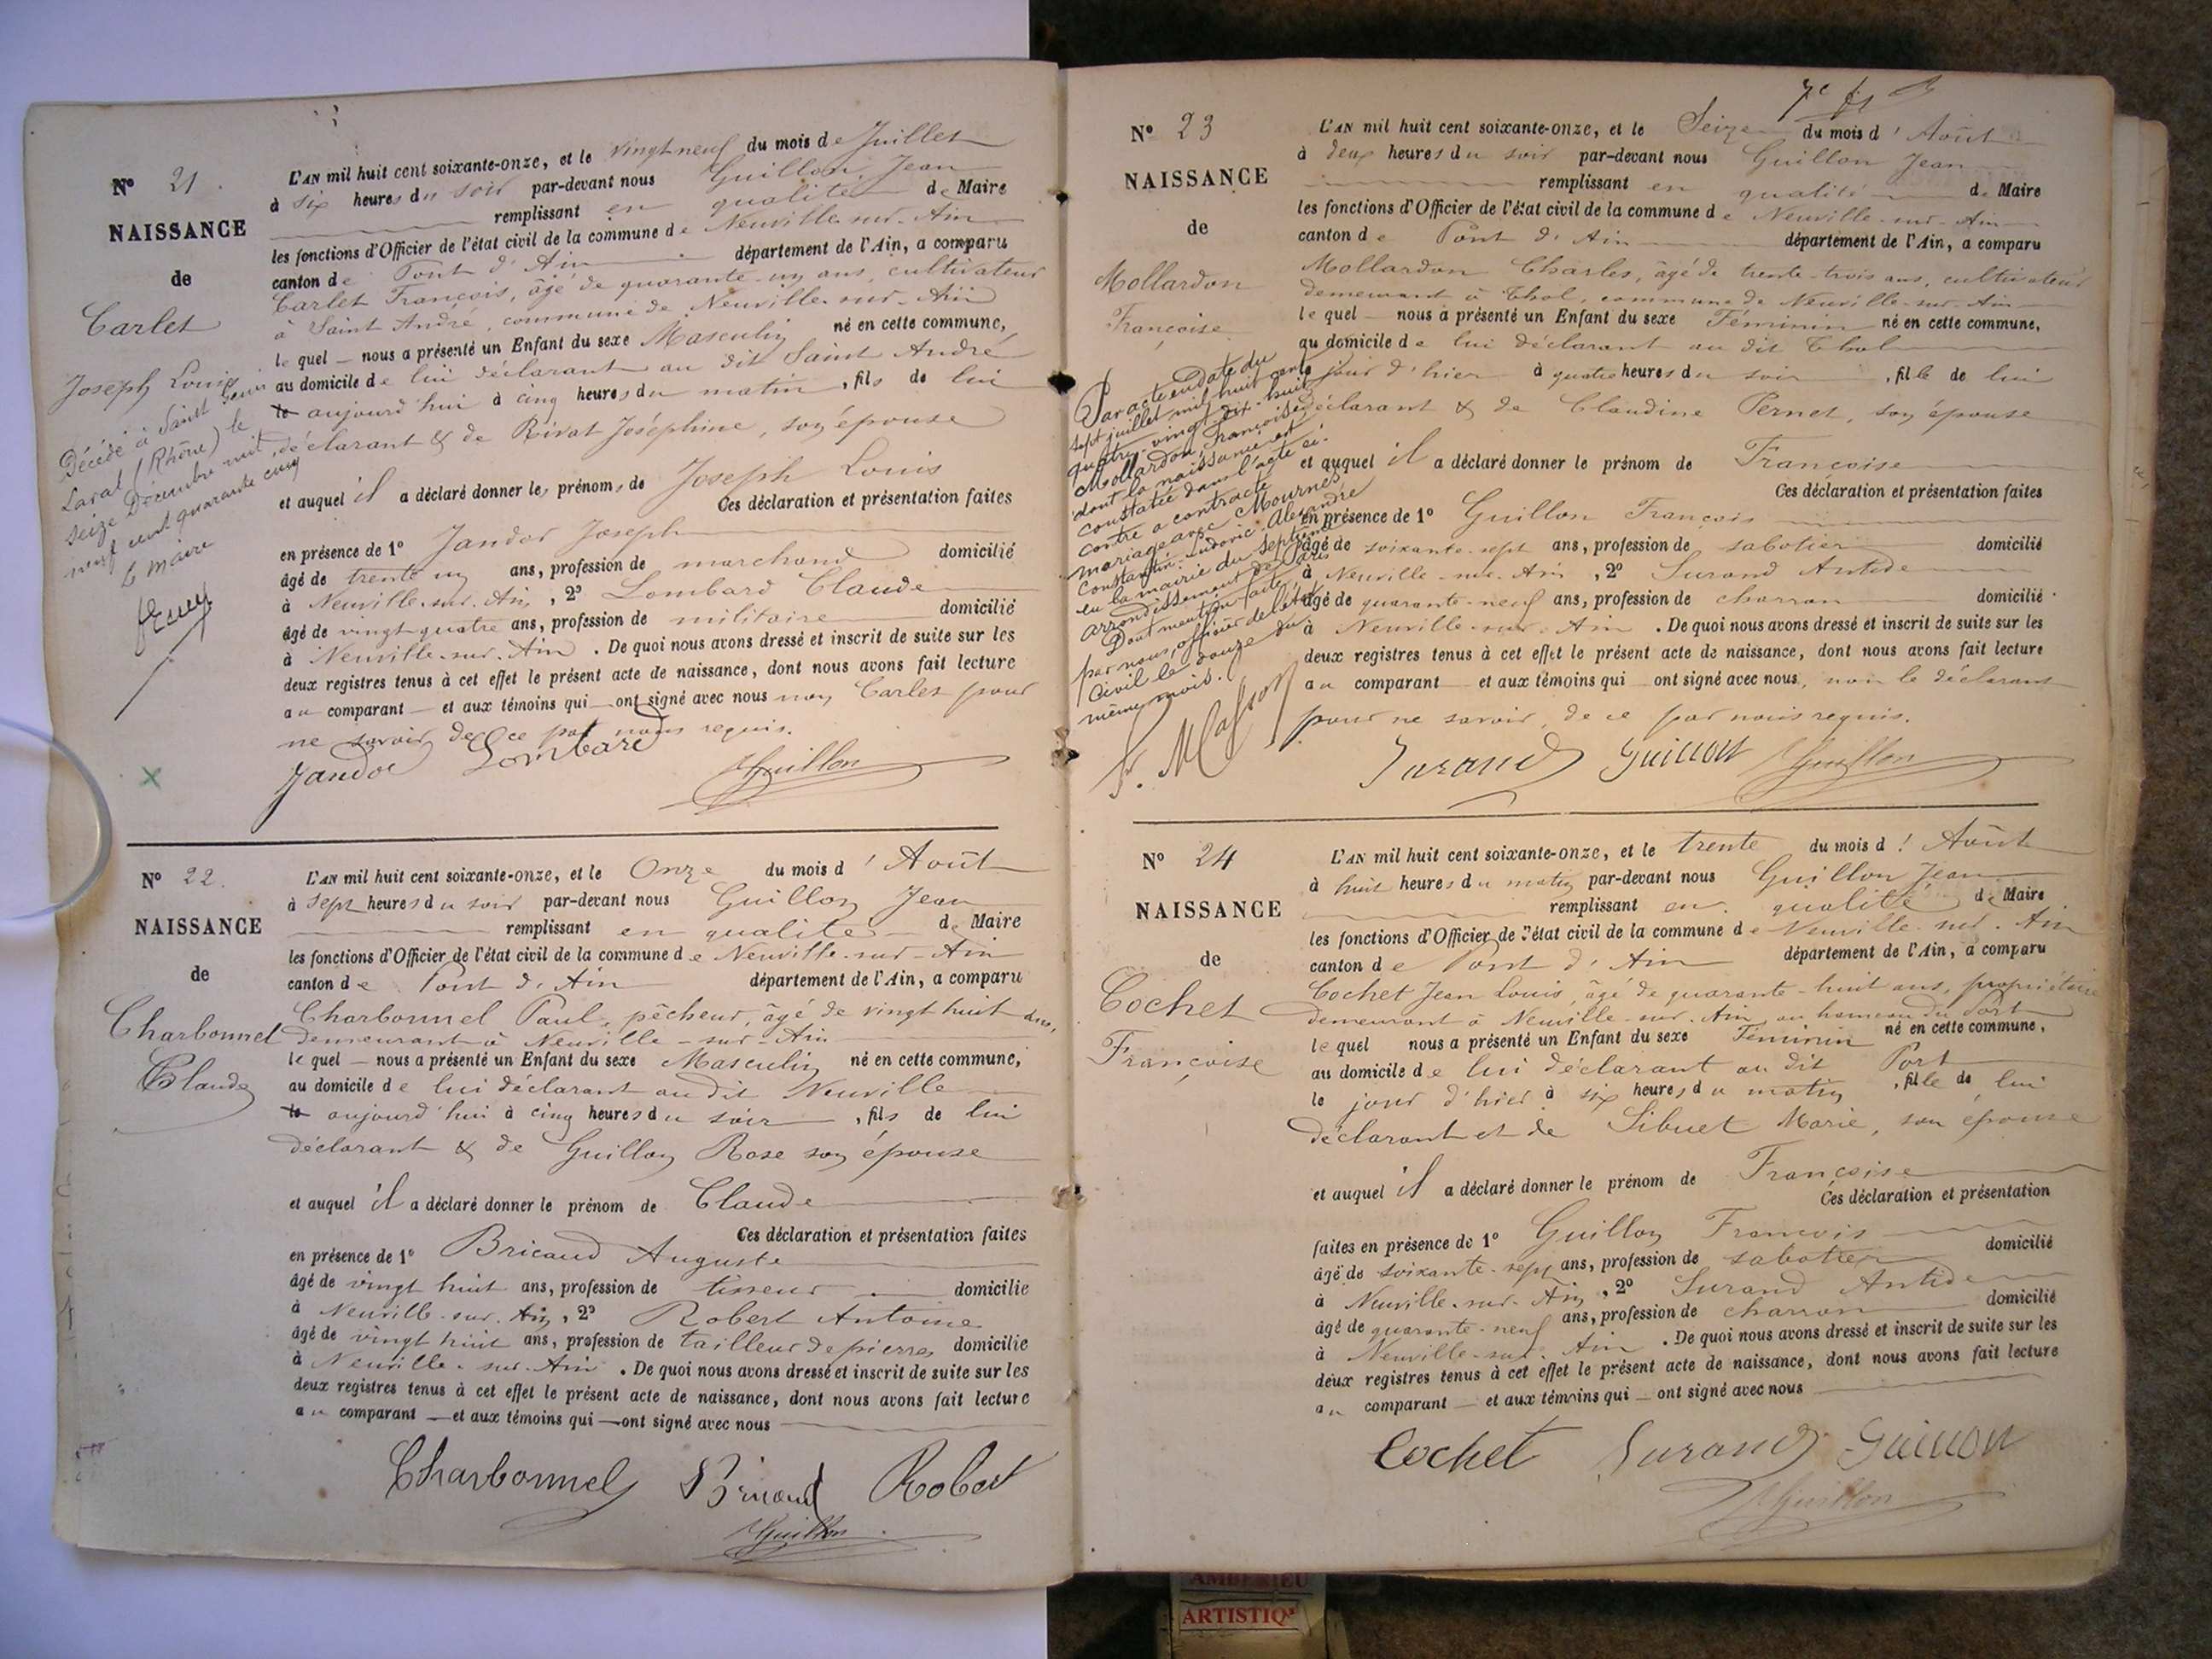 N° 21.
NAISSANCE
de
Carlet
Joseph Louis
Décédé à Saint Genis
Laval (Rhône) le
seize Décembre mil
neuf cent quarante cinq
Le Maire
L'AN mil huit cent soixante-onze, et le vingt neuf du mois de Juillet
à six heures du soir par-devant nous Guillon, Jean
remplissant en qualité de Maire
les fonctions d'Officier de l'état civil de la commune de Neuville-sur-Ain
canton de Pont d'Ain département de l'Ain, a comparu
Carlet François, âgé de quarante-un ans, cultivateur
à Saint André, commune de Neuville-sur-Ain
lequel nous a présenté un Enfant du sexe Masculin né en cette commune,
au domicile de lui déclarant au dit Saint André
le aujourd'hui à cinq heures du matin, fils de lui
déclarant & de Rivat Joséphine, son épouse
et auquel il a déclaré donner les prénoms de Joseph Louis
Ces déclaration et présentation faites
en présence de 1° Jandor Joseph
âgé de trente un ans, profession de marchand domicilié
à Neuville-sur-Ain, 2° Lombard Claude
âgé de vingt quatre ans, profession de militaire domicilié
à Neuville-sur-Ain. De quoi nous avons dressé et inscrit de suite sur les
deux registres tenus à cet effet le présent acte de naissance, dont nous avons fait lecture
au comparant et aux témoins qui ont signé avec nous non Carlet pour
ne savoir, de ce par nous requis.
Jandor Lombard
Guillon
N° 22.
NAISSANCE
de
Charbonnel
Claude
L'AN mil huit cent soixante-onze, et le Onze du mois d'Août
à sept heures du soir par-devant nous Guillon Jean
remplissant en qualité de Maire
les fonctions d'Officier de l'état civil de la commune de Neuville-sur-Ain
canton de Pont d'Ain département de l'Ain, a comparu
Charbonnel Paul, pêcheur, âgé de vingt huit ans,
demeurant à Neuville-sur-Ain
lequel nous a présenté un Enfant du sexe Masculin né en cette commune,
au domicile de lui déclarant au dit Neuville
le aujourd'hui à cinq heures du soir, fils de lui
déclarant & de Guillon Rose son épouse
et auquel il a déclaré donner le prénom de Claude
Ces déclaration et présentation faites
en présence de 1° Bricaud Auguste
âgé de vingt huit ans, profession de tisseur domicilié
à Neuville-sur-Ain, 2° Robert Antoine
âgé de vingt huit ans, profession de tailleur de pierres domicilié
à Neuville-sur-Ain. De quoi nous avons dressé et inscrit de suite sur les
deux registres tenus à cet effet le présent acte de naissance, dont nous avons fait lecture
au comparant et aux témoins qui ont signé avec nous
Charbonnel Bricaud Robert
Guillon
N° 23
NAISSANCE
de
Mollardon
Françoise
Par acte en date du
sept juillet mil huit cent
quatre-vingt-dix-huit
Mollardon, Françoise,
dont la naissance est
constatée dans l'acte ci-
contre a contracté
mariage avec Mournès
Constantin-Ludovic-Alexandre
en la mairie du septième
arrondissement de Paris
Dont mention faite
par nous, officier de l'état
civil le douze du
même mois.
F. Masson
L'AN mil huit cent soixante-onze, et le Seize du mois d'Août
à deux heures du soir par-devant nous Guillon Jean
remplissant en qualité de Maire
les fonctions d'Officier de l'état civil de la commune de Neuville-sur-Ain
canton de Pont d'Ain département de l'Ain, a comparu
Mollardon Charles, âgé de trente-trois ans, cultivateur
demeurant à Thol, commune de Neuville-sur-Ain
lequel nous a présenté un Enfant du sexe Féminin né en cette commune,
au domicile de lui déclarant au dit Thol
le jour d'hier à quatre heures du soir, fille de lui
déclarant & de Claudine Pernet, son épouse
et auquel il a déclaré donner le prénom de Françoise
Ces déclaration et présentation faites
en présence de 1° Guillon François
âgé de soixante-sept ans, profession de sabotier domicilié
à Neuville-sur-Ain, 2° Durand Antide
âgé de quarante-neuf ans, profession de charron domicilié
à Neuville-sur-Ain. De quoi nous avons dressé et inscrit de suite sur les
deux registres tenus à cet effet le présent acte de naissance, dont nous avons fait lecture
au comparant et aux témoins qui ont signé avec nous, non le déclarant
pour ne savoir, de ce par nous requis.
Durand Guillon Guillon
N° 24
NAISSANCE
de
Cochet
Françoise
L'AN mil huit cent soixante-onze, et le trente du mois d'Août
à huit heures du matin par-devant nous Guillon Jean
remplissant en qualité de Maire
les fonctions d'Officier de l'état civil de la commune de Neuville-sur-Ain
canton de Pont d'Ain département de l'Ain, a comparu
Cochet Jean Louis, âgé de quarante-huit ans, propriétaire
demeurant à Neuville-sur-Ain, au hameau du Port
lequel nous a présenté un Enfant du sexe Féminin né en cette commune,
au domicile de lui déclarant au dit Port
le jour d'hier à six heures du matin, fille de lui
déclarant et de Sibuet Marie, son épouse
et auquel il a déclaré donner le prénom de Françoise
Ces déclaration et présentation
faites en présence de 1° Guillon François
âgé de soixante-sept ans, profession de sabotier domicilié
à Neuville-sur-Ain, 2° Durand Antide
âgé de quarante-neuf ans, profession de charron domicilié
à Neuville-sur-Ain. De quoi nous avons dressé et inscrit de suite sur les
deux registres tenus à cet effet le présent acte de naissance, dont nous avons fait lecture
au comparant et aux témoins qui ont signé avec nous
Cochet Durand Guillon
Guillon
AMBERIEU
ARTISTIQ